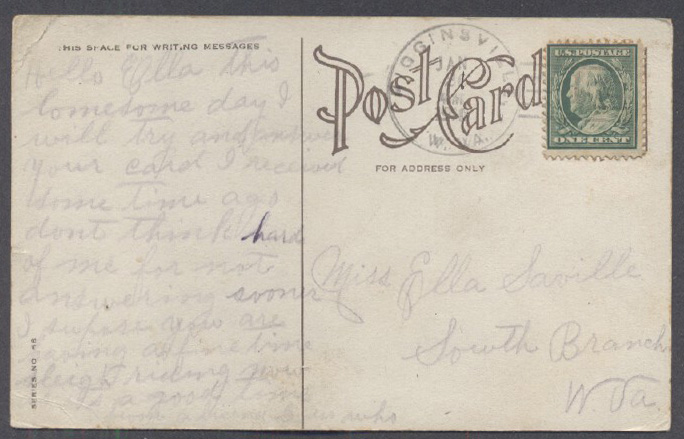 THIS SPACE FOR WRITING MESSAGES
Hello Ella this
lonesome day I
will try and answer
your card I received
some time ago
dont think hard
of me for not
answering sooner
I supose you are
having a fine time
sleigh riding now
is a good time
from a friend
Post Card
FOR ADDRESS ONLY
JAN
W. VA.
U.S. POSTAGE
ONE CENT
Miss Ella Saville
South Branch
W. Va.
SERIES NO.